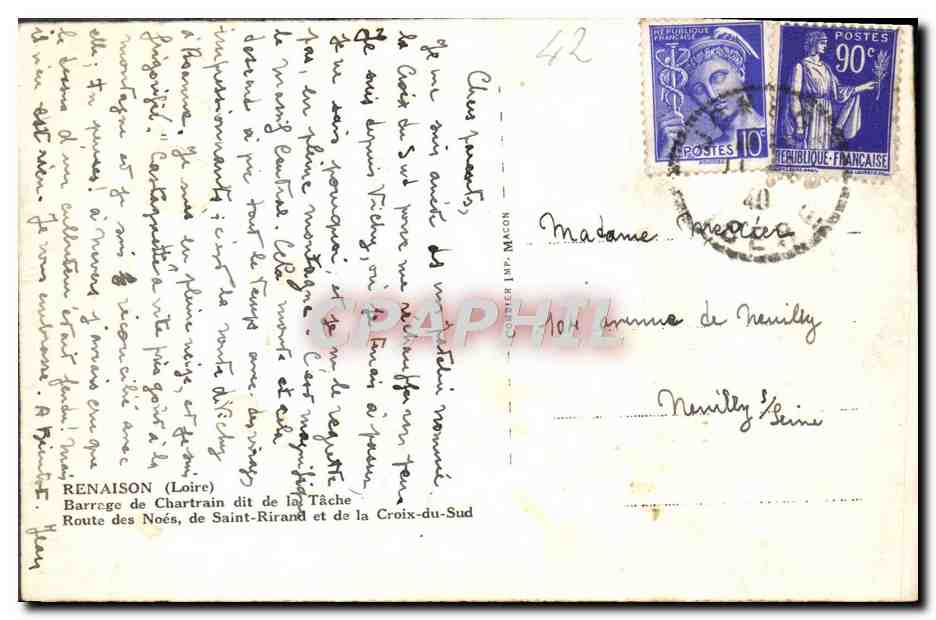 42
RÉPUBLIQUE FRANÇAISE
POSTES 10c
POSTES
90c
RÉPUBLIQUE-FRANÇAISE
40
Chers parents,
Je me suis arrêté dans un patelin nommé
la Croix du Sud pour me réchauffer un peu
Je suis depuis Vichy, où je tenais à passer,
je ne sais pourquoi, et je ne le regrette
pas, en pleine montagne. C'est magnifique
le massif Central. Cela monte et cela
descend à pic tout le temps avec des virages
impressionnants ; c'est la route de Vichy
à Roanne. Je suis en pleine neige, et je suis
frigorifié. "Castagnette" a vite pris goût à la
montagne et je suis réconcilié avec
elle ; tu penses ! à Nevers j'avais cru que
le dessus d'un culbuteur était fendu ! Mais
il n'en est rien. Je vous embrasse. A Bientôt. Jean
RENAISON (Loire)
Barrage de Chartrain dit de la Tâche
Route des Noés, de Saint-Rirand et de la Croix-du-Sud
CORDIER IMP. MACON
Madame Mercier
104 avenue de Neuilly
Neuilly s/Seine
CPAPHIL